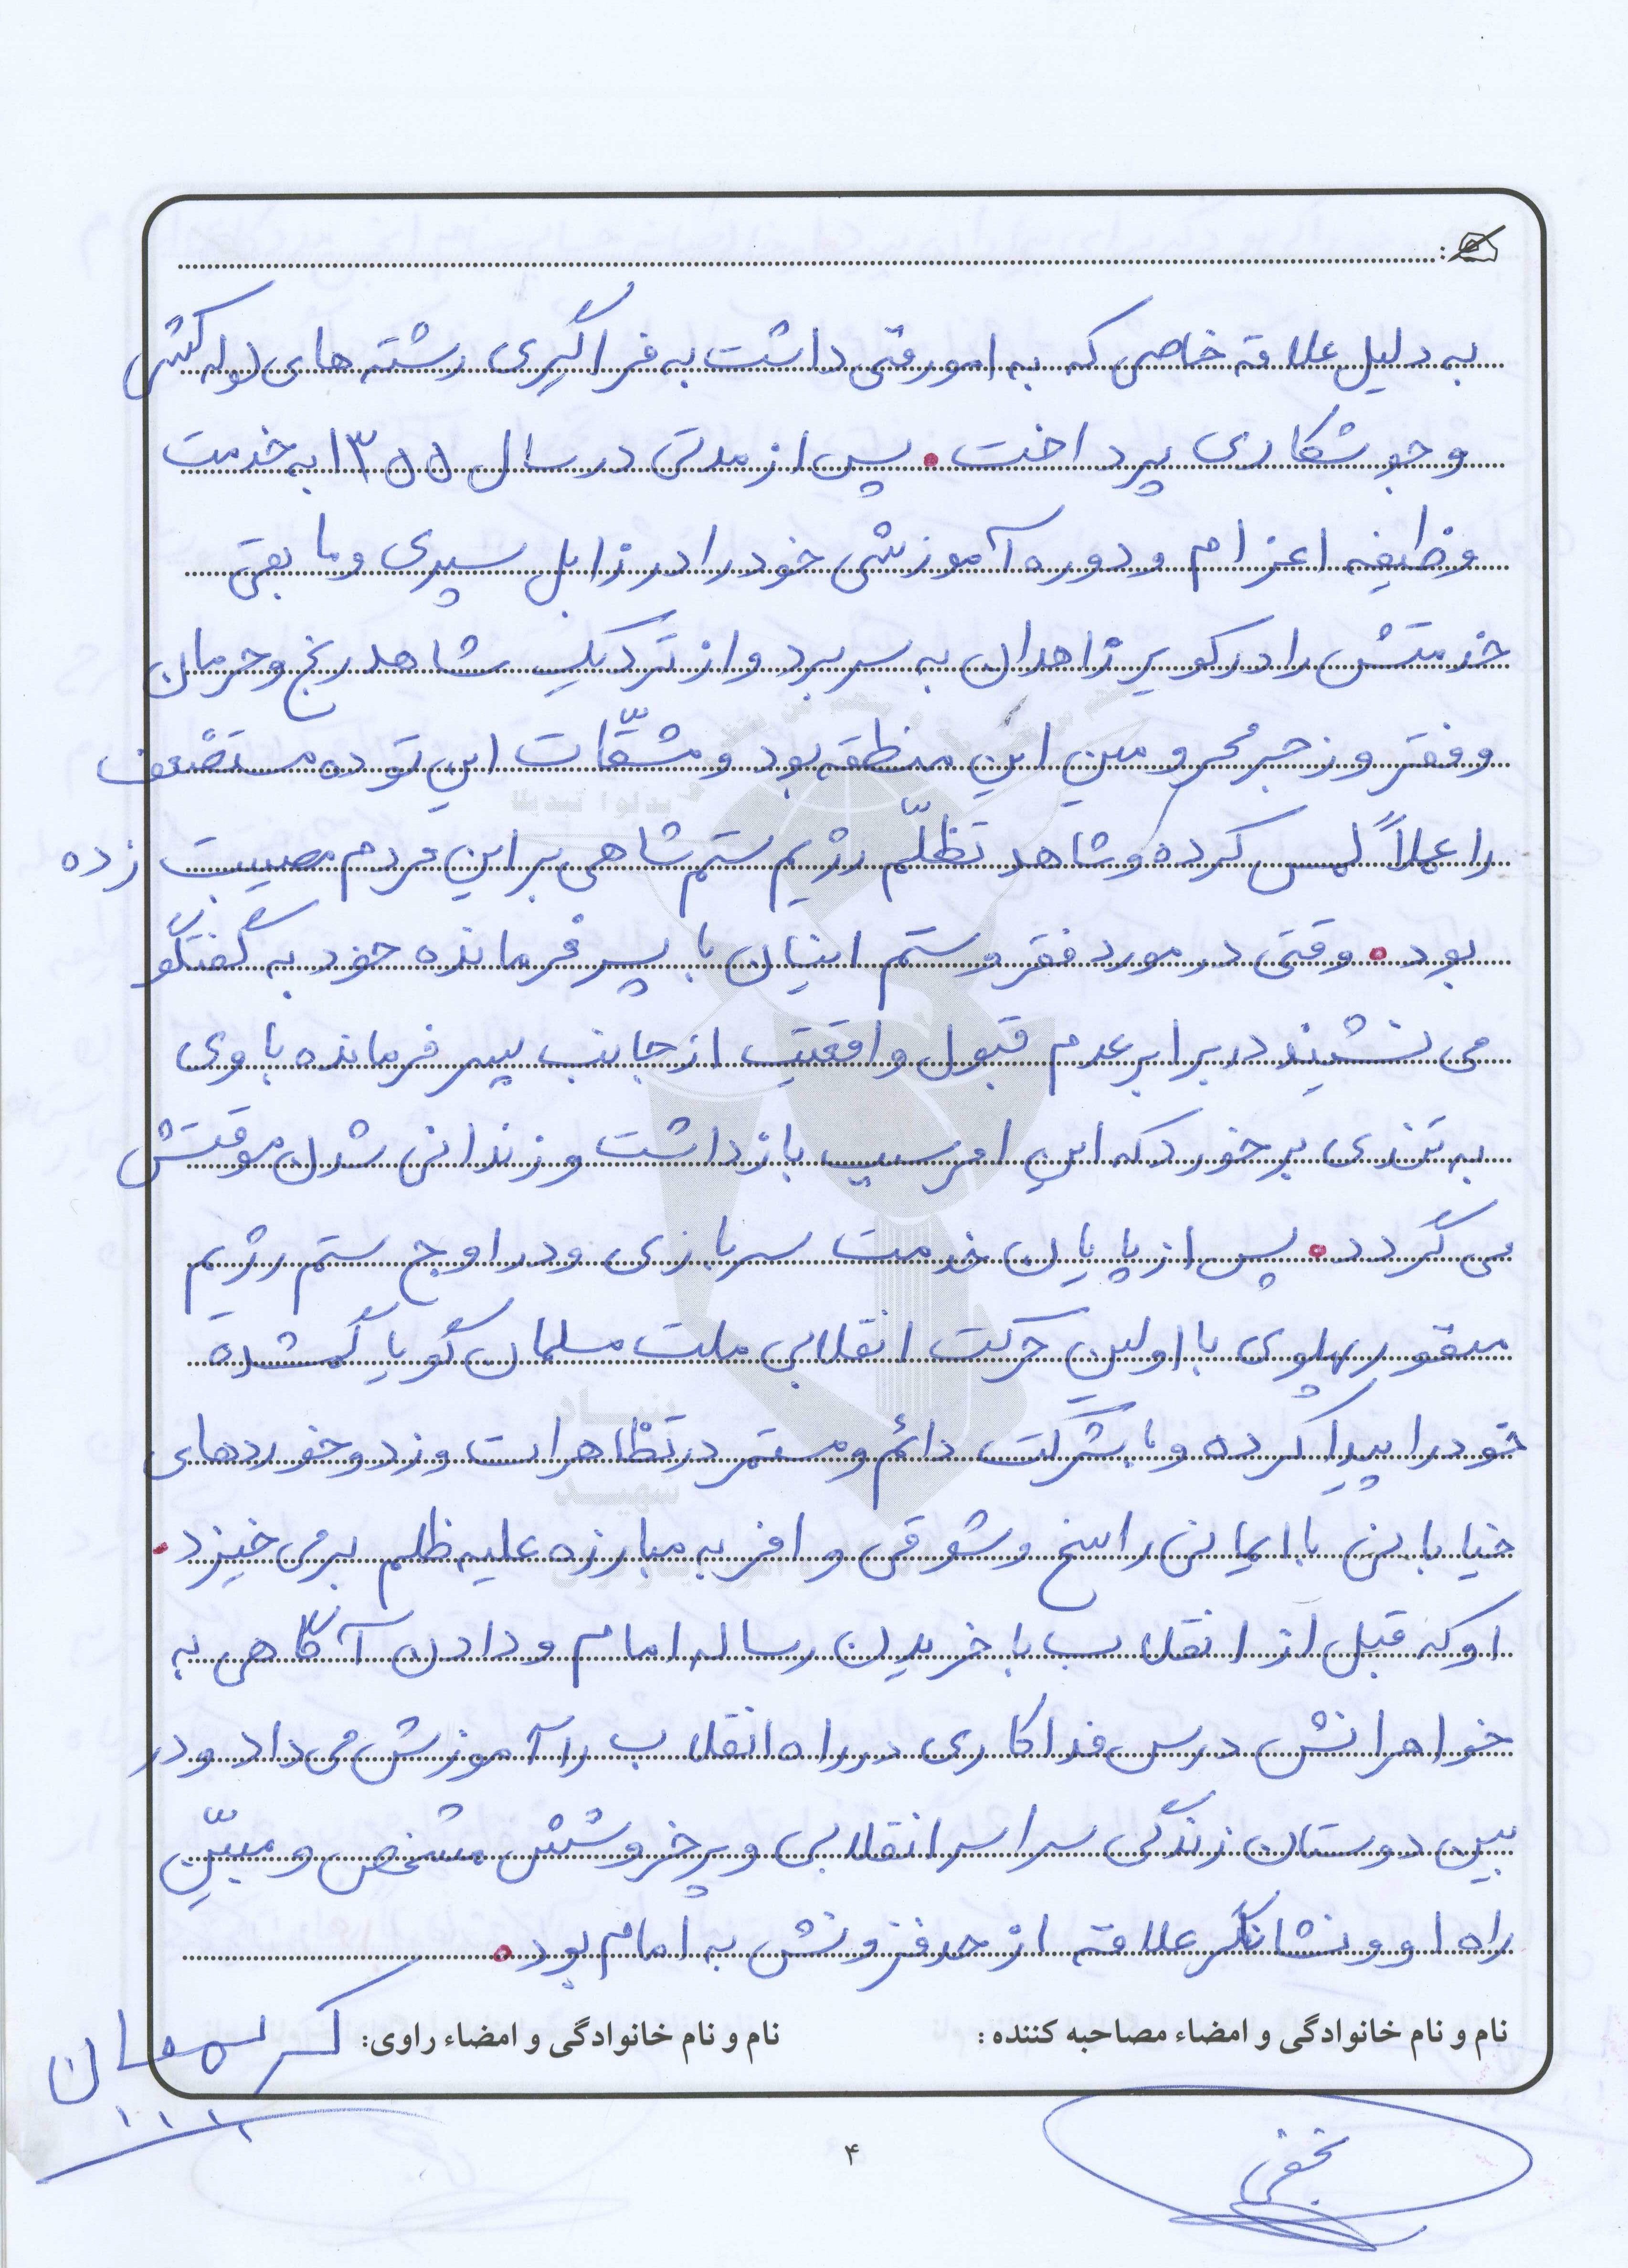 به دلیل علاقه خاصی که به امور فنی داشت به فراگیری رشته های لوله کشی
و جوشکاری پرداخت. پس از مدتی در سال ۱۳۵۵ به خدمت
وظیفه اعزام و دوره آموزشی خود را در زابل سپری و مابقی
خدمتش را در کویر زاهدان به سر برد و از نزدیک شاهد رنج و حرمان
و فقر و زجر محرومین این منطقه بود و مشقّات این توده مستضعف
را عملاً لمس کرده و شاهد تظلّم رژیم ستم شاهی بر این مردم مصیبت زده
بود. وقتی در مورد فقر و ستم اینان با پسر فرمانده خود به گفتگو
می نشیند در برابر عدم قبول واقعیت از جانب پسر فرمانده با وی
به تندی برخورد که این امر سبب بازداشت و زندانی شدن موقتش
می گردد. پس از پایان خدمت سربازی و در اوج ستم رژیم
منفور پهلوی با اولین حرکت انقلابی ملت مسلمان گویا گمشدهٔ
خود را پیدا کرده و با شرکت دائم و مستمر در تظاهرات و زد و خوردهای
خیابانی با ایمانی راسخ و شوقی وافر به مبارزه علیه ظلم برمی خیزد.
او که قبل از انقلاب با خریدن رساله امام و دادن آگاهی به
خواهرانش درس فداکاری در راه انقلاب را آموزش می داد و در
بین دوستان زندگی سراسر انقلابی و پرخروشش مشخص و مبیّن
راه او و نشانگر علاقه از حد فزونش به امام بود.
نام و نام خانوادگی و امضاء مصاحبه کننده: نام و نام خانوادگی و امضاء راوی:
نجفی
۴